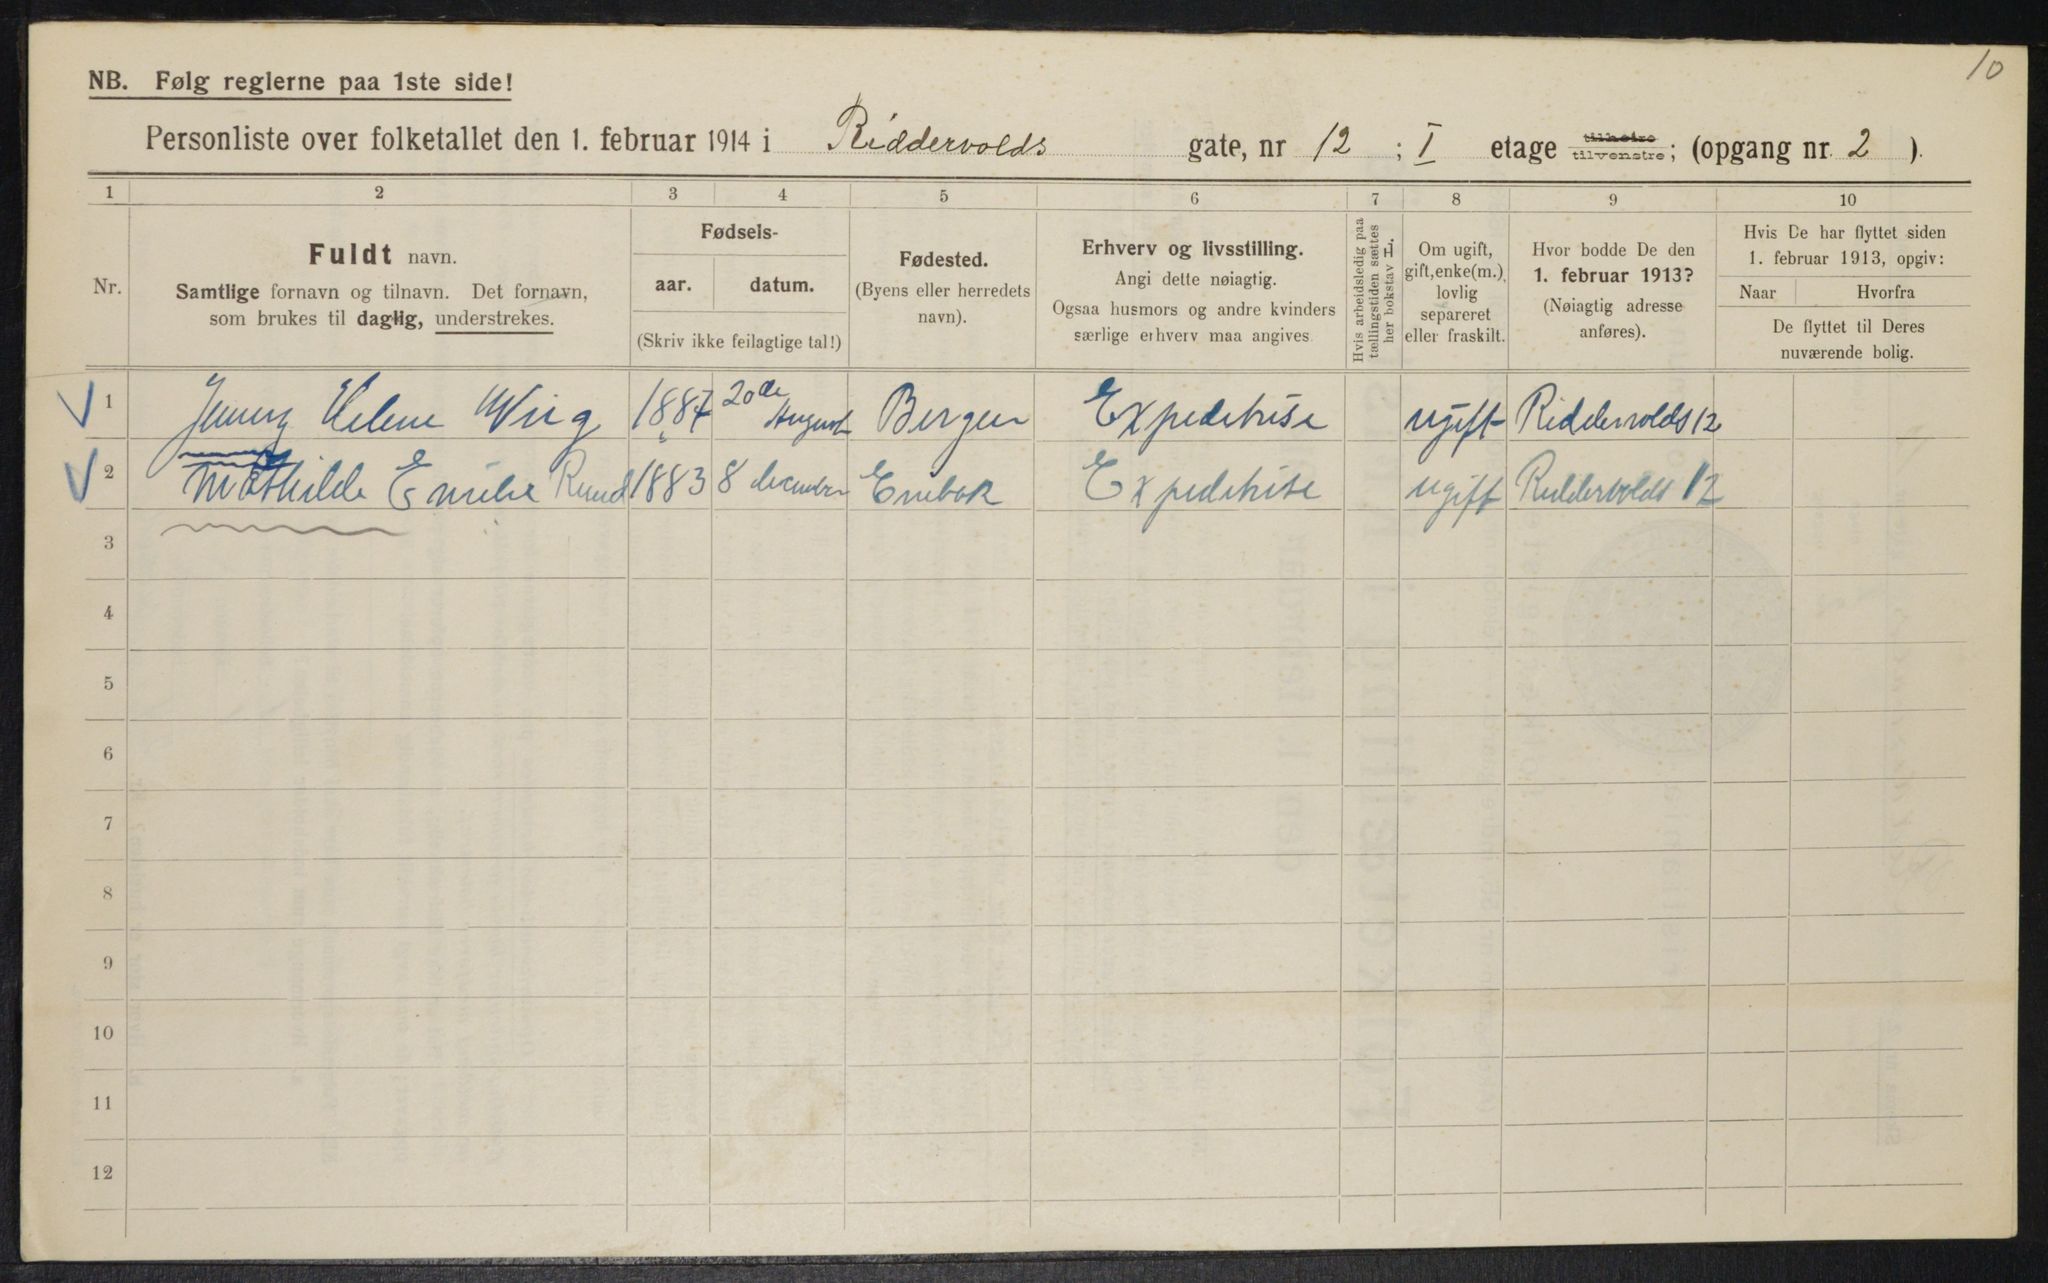 10
NB. Følg reglerne paa 1ste side!
Personliste over folketallet den 1. februar 1914 i Riddervolds gate, nr 12 ; I etage tilhøire tilvenstre; (opgang nr. 2 ).
1 2 3 4 5 6 7 8 9 10
Nr.
Fuldt navn.
Samtlige fornavn og tilnavn. Det fornavn,
som brukes til daglig, understrekes.
Fødsels-
aar. datum.
(Skriv ikke feilagtige tal!)
Fødested.
(Byens eller herredets
navn).
Erhverv og livsstilling.
Angi dette nøiagtig.
Ogsaa husmors og andre kvinders
særlige erhverv maa angives
Hvis arbeidsledig paa
tællingstiden sættes
her bokstav L.
Om ugift,
gift, enke(m.),
lovlig
separeret
eller fraskilt.
Hvor bodde De den
1. februar 1913?
(Nøiagtig adresse
anføres).
Hvis De har flyttet siden
1. februar 1913, opgiv:
Naar Hvorfra
De flyttet til Deres
nuværende bolig.
1 Jenny Helene Wiig 1884 20de August Bergen Expeditrise ugift Riddervolds 12
2 Mathilde Emilie Ruud 1883 8 december Enebak Expeditrise ugift Riddervolds 12
3
4
5
6
7
8
9
10
11
12